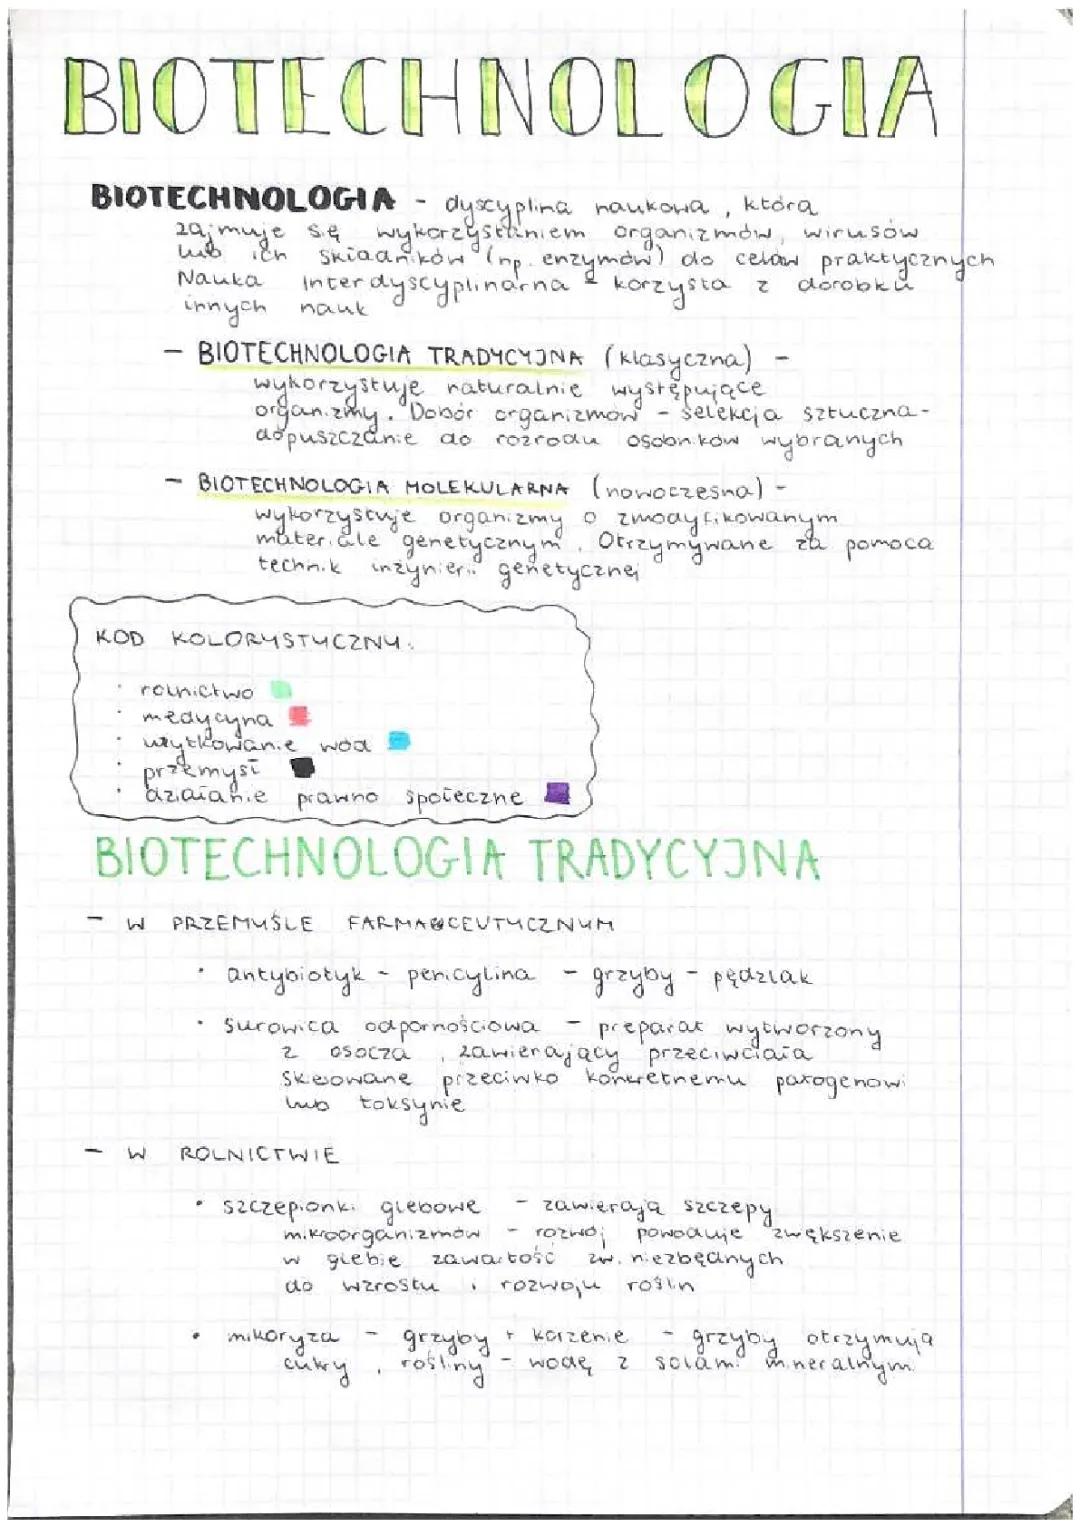 BIOTECHNOLOGIA
BIOTECHNOLOGIA - dyscyplina naukowa, która
zajmuje się wykorzystaniem organizmów, wirusów
lub ich składników (np. enzymów) do celów praktycznych
Nauka interdyscyplinarna - korzysta z dorobku
innych nauk
- BIOTECHNOLOGIA TRADYCYJNA (klasyczna) -
wykorzystuje naturalnie występujące
organizmy. Dobór organizmów - selekcja sztuczna -
dopuszczanie do rozrodu osobników wybranych
- BIOTECHNOLOGIA MOLEKULARNA (nowoczesna) -
wykorzystuje organizmy o zmodyfikowanym
materiale genetycznym. Otrzymywane za pomocą
technik inżynierii genetycznej
KOD KOLORYSTYCZNY:
· rolnictwo
· medycyna
· użytkowanie wód
· przemysł
· działanie prawno społeczne
BIOTECHNOLOGIA TRADYCYJNA
- W PRZEMYŚLE FARMACEUTYCZNYM
· antybiotyk - penicylina - grzyby - pędzlak
· surowica odpornościowa - preparat wytworzony
z osocza, zawierający przeciwciała
skierowane przeciwko konkretnemu patogenowi
lub toksynie
- W ROLNICTWIE
· szczepionki glebowe - zawierają szczepy
mikroorganizmów - rozwój powoduje zwiększenie
w glebie zawartość zw. niezbędnych
do wzrostu i rozwoju roślin
· mikoryza - grzyby + korzenie - grzyby otrzymują
cukry, rośliny - wodę z solami mineralnymi